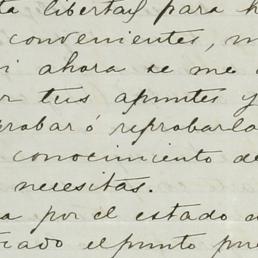 ta libertad para h
convenientes, m
i ahora se me
r tus apuntes y
probar ó reprobarla
conocimiento de
necesitas.
a por el estado
icado el punto pue